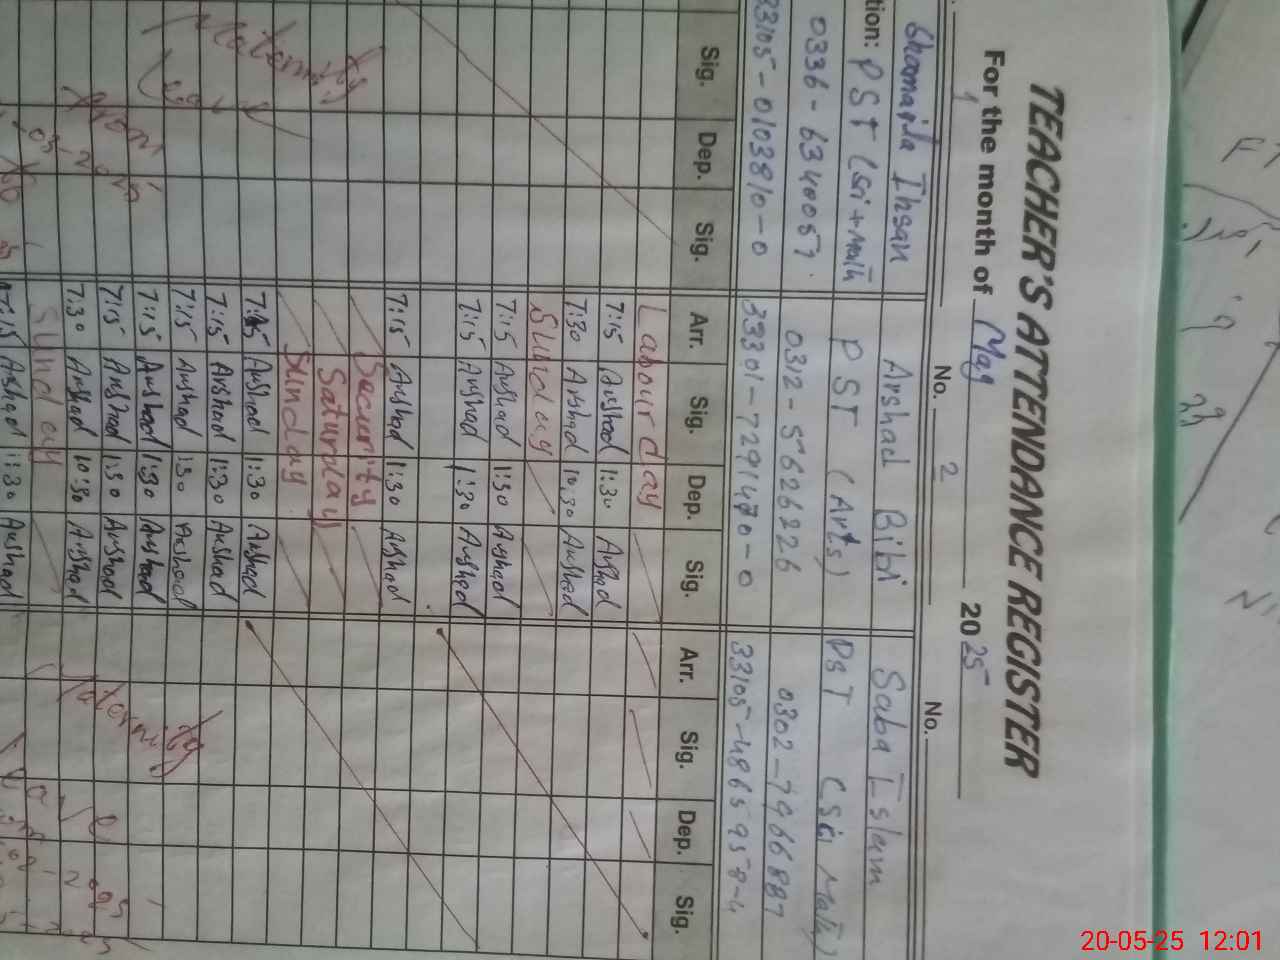 TEACHER'S ATTENDANCE REGISTER
For the month of May 2025
No. 2 No.
Shomaila Ihsan Arshad Bibi Saba Eslam
tion: PST (Sci + Math PST (Arts) PST (Sci Math)
0336-6340057 0312-5626226 0302-7966887
33105-0103810-0 33301-7291470-0 33105-4865958-4
Sig. Dep. Sig. Arr. Sig. Dep. Sig. Arr. Sig. Dep. Sig.
Labour day
7:15 Arshad 1:30 Arshad
7:30 Arshad 10:30 Arshad
Sunday
7:15 Arshad 1:30 Arshad
7:15 Arshad 1:30 Arshad
7:15 Arshad 1:30 Arshad
Security
Saturday
Sunday
7:15 Arshad 1:30 Arshad
7:15 Arshad 1:30 Arshad
7:15 Arshad 1:30 Arshad
7:15 Arshad 1:30 Arshad
7:15 Arshad 1:30 Arshad
7:30 Arshad 10:30 Arshad
Sunday
07:15 Arshad 1:30 Arshad
Maternity
Maternity
20-05-25 12:01